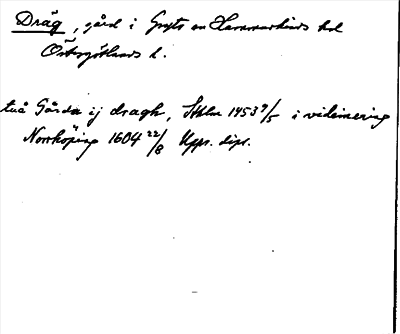 Dräg, gård i Gryts sn Hammarkinds hd
Östergötlands l.
två Gårda ij dragh, Sthlm 1453 9/5 i vidimering
Norrköping 1604 22/8 Upps. dipl.